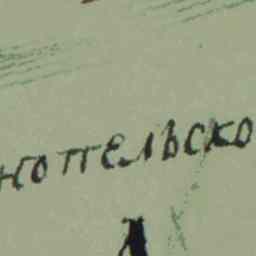 нопельско